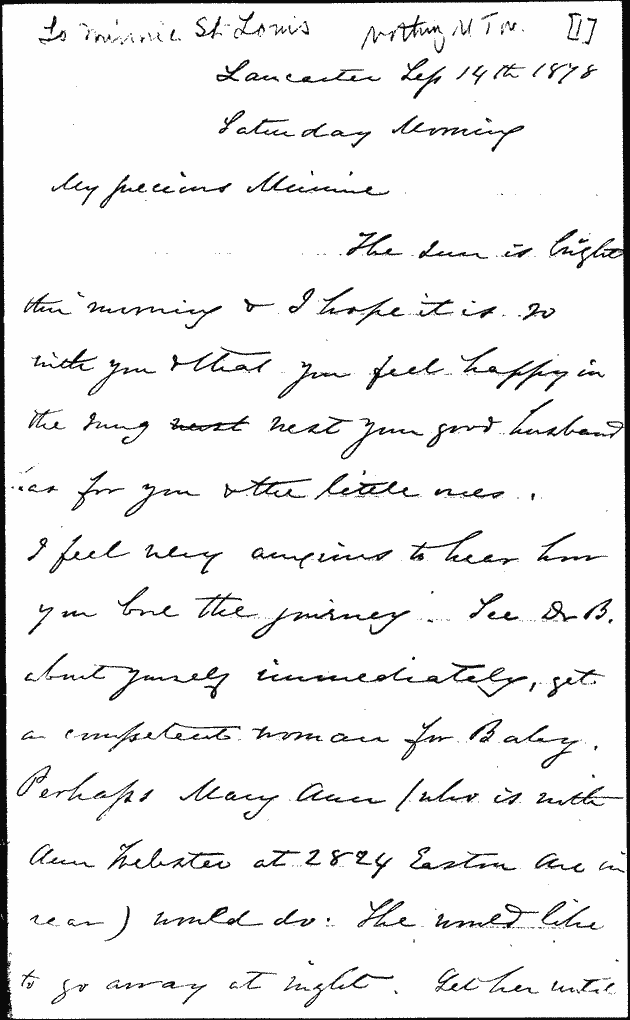 To Minnie St Louis nothing M T M. [1]
Lancaster Sep 14th 1878
Saturday Morning
My precious Minnie
The sun is bright
this morning & I hope it is so
with you & that you feel happy in
the snug nest nest your good husband
has for you & the little ones.
I feel very anxious to hear how
you bore the journey. See Dr B.
about yourself immediately, get
a competent woman for Baby.
Perhaps Mary Ann (who is with
Ann Webster at 2824 Easton Ave in
rear) would do. She would like
to go away at night. Get her until